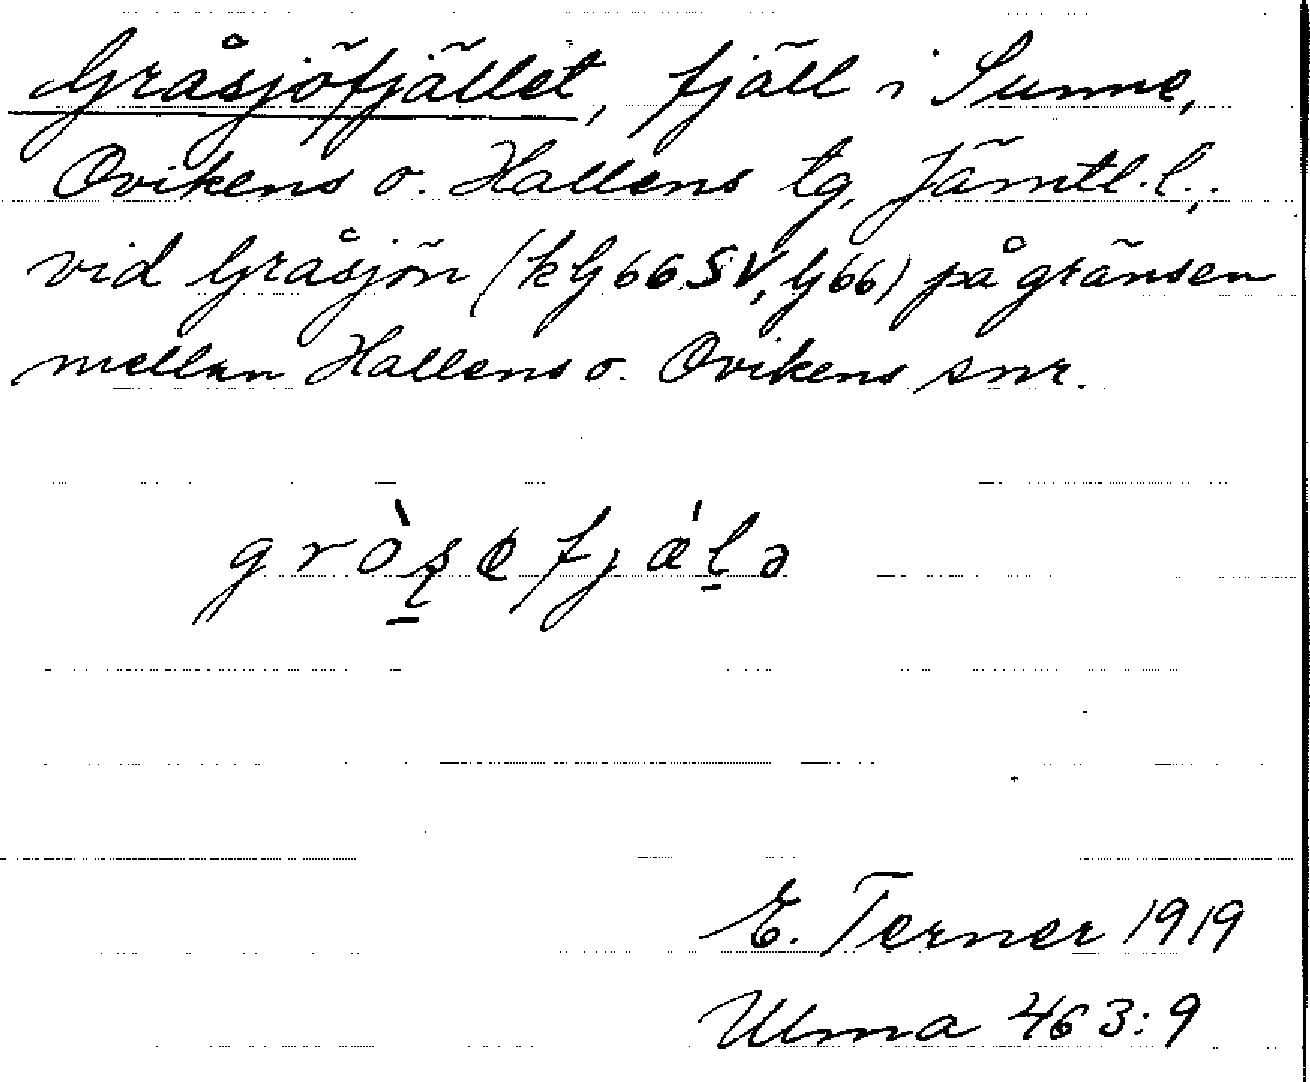 Gråsjöfjället, fjäll i Sunne,
Ovikens o. Hallens tg, Jämtl. l.;
vid Gråsjön (kG66SV, G66) på gränsen
mellan Hallens o. Ovikens snr.
E. Terner 1919
Ulma 463:9